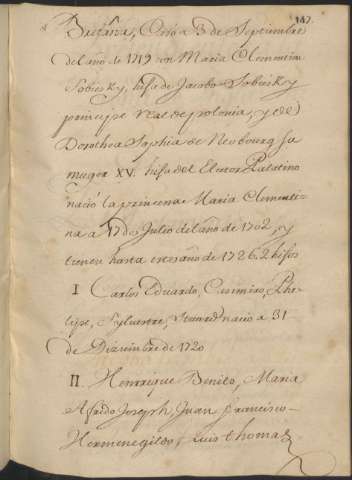 147.
Bretaña, Casó a 3 de Septiembre
del año de 1719 con Maria Clementina
Sobiesky, hija de Jacobo Sobiesky
principe real de polonia, y de
Dorothea Sophia de Neobourg su
muger XV. hija del Elector Palatino
nació la princesa Maria Clementi-
na a 17 de Julio del año de 1702, y
tienen hasta este año de 1726. 2 hijos
I Carlos Eduardo, Casimiro, Phe-
lipe, Sylvestre, Stuard nacio a 31
de Diziembre de 1720
II. Henrrique Benito, Maria
Alfredo Joseph, Juan, francisco-
Hermenegildo, Luis thomas